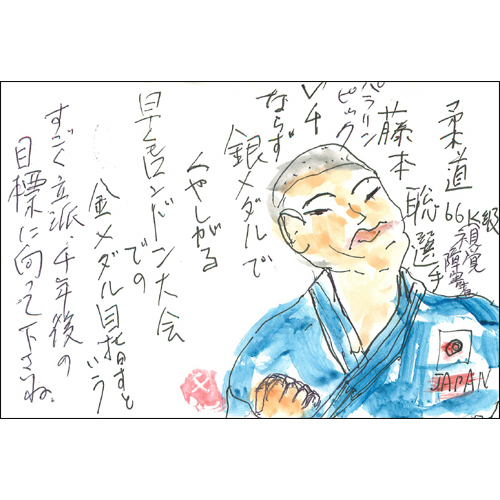 柔道66K級
視覚障害者
藤本聡選手
パラリンピック
V4
ならず
銀メダルで
くやしがる
早くもロンドン大会
での
金メダル目指すと
いう
すごく立派.4年後の
目標に向って下さいね.
JAPAN